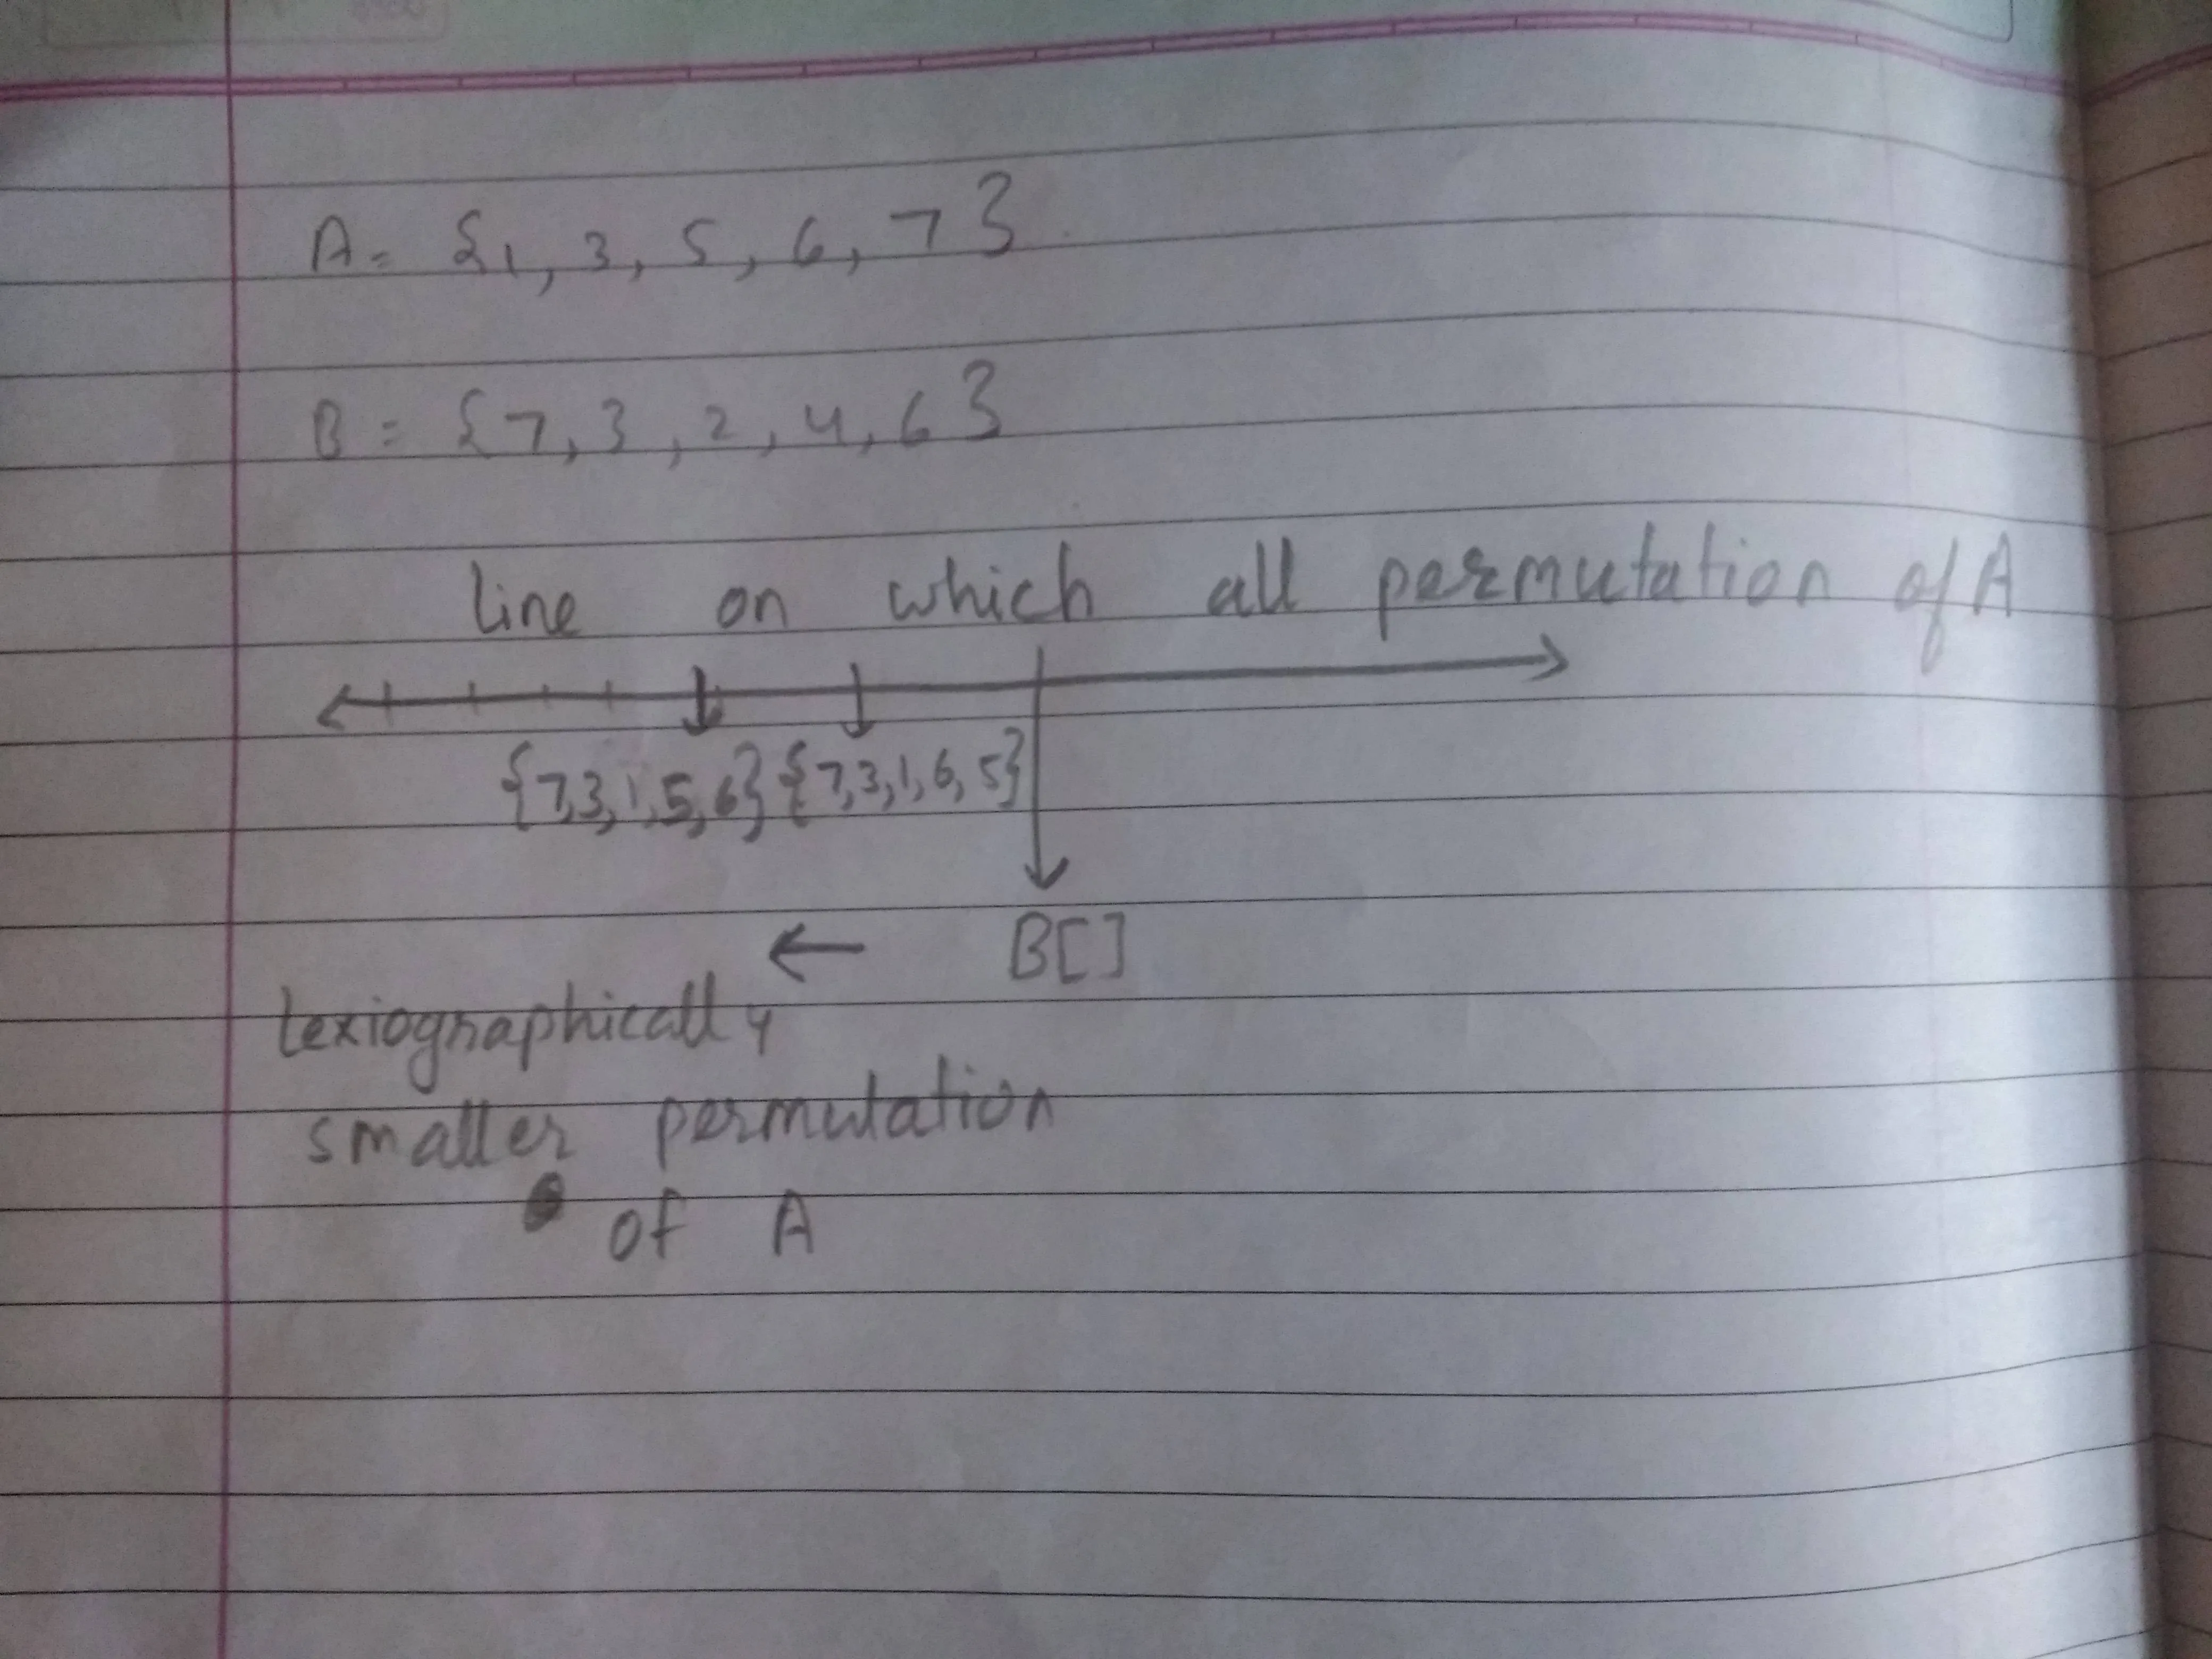 A= {1, 3, 5, 6, 7}
B = {7, 3, 2, 4, 6}
line on which all permutation of A
{7,3,1,5,6} {7,3,1,6,5}
← B[]
lexiographically
smaller permutation
of A